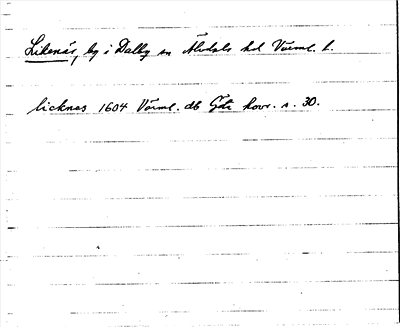 Likenäs, by i Dalby sn Älvdals hd Värml. l.
licknes 1604 Värml. db Göta hovr. s. 30.